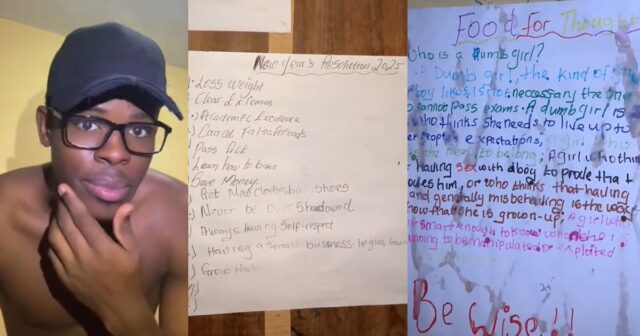 New Year's Resolution 2025
Less Weight
Clear Extemos
Academic Excellence
Cancel Fake friends
Pass
Learn how to
Save Money
Get New clothes, bag, shoes
Never be over Shadowed
Always having Self-respect
Having a small business-
Grow Hair
Food for Thought
Who is a dumb girl?
Dumb girl, the kind of
boy likes, is not necessary the one
cannot pass exams. A dumb girl is
who thinks she needs to live up to
people expectations, a girl who
the need to belong; A girl who thin
having sex with a boy to prove that
loves him, or who thinks that having
and generally misbehaving is the
how that she is grown-up; A girl who
smart enough to know when she
to be manipulated or exploited
Be Wise!!